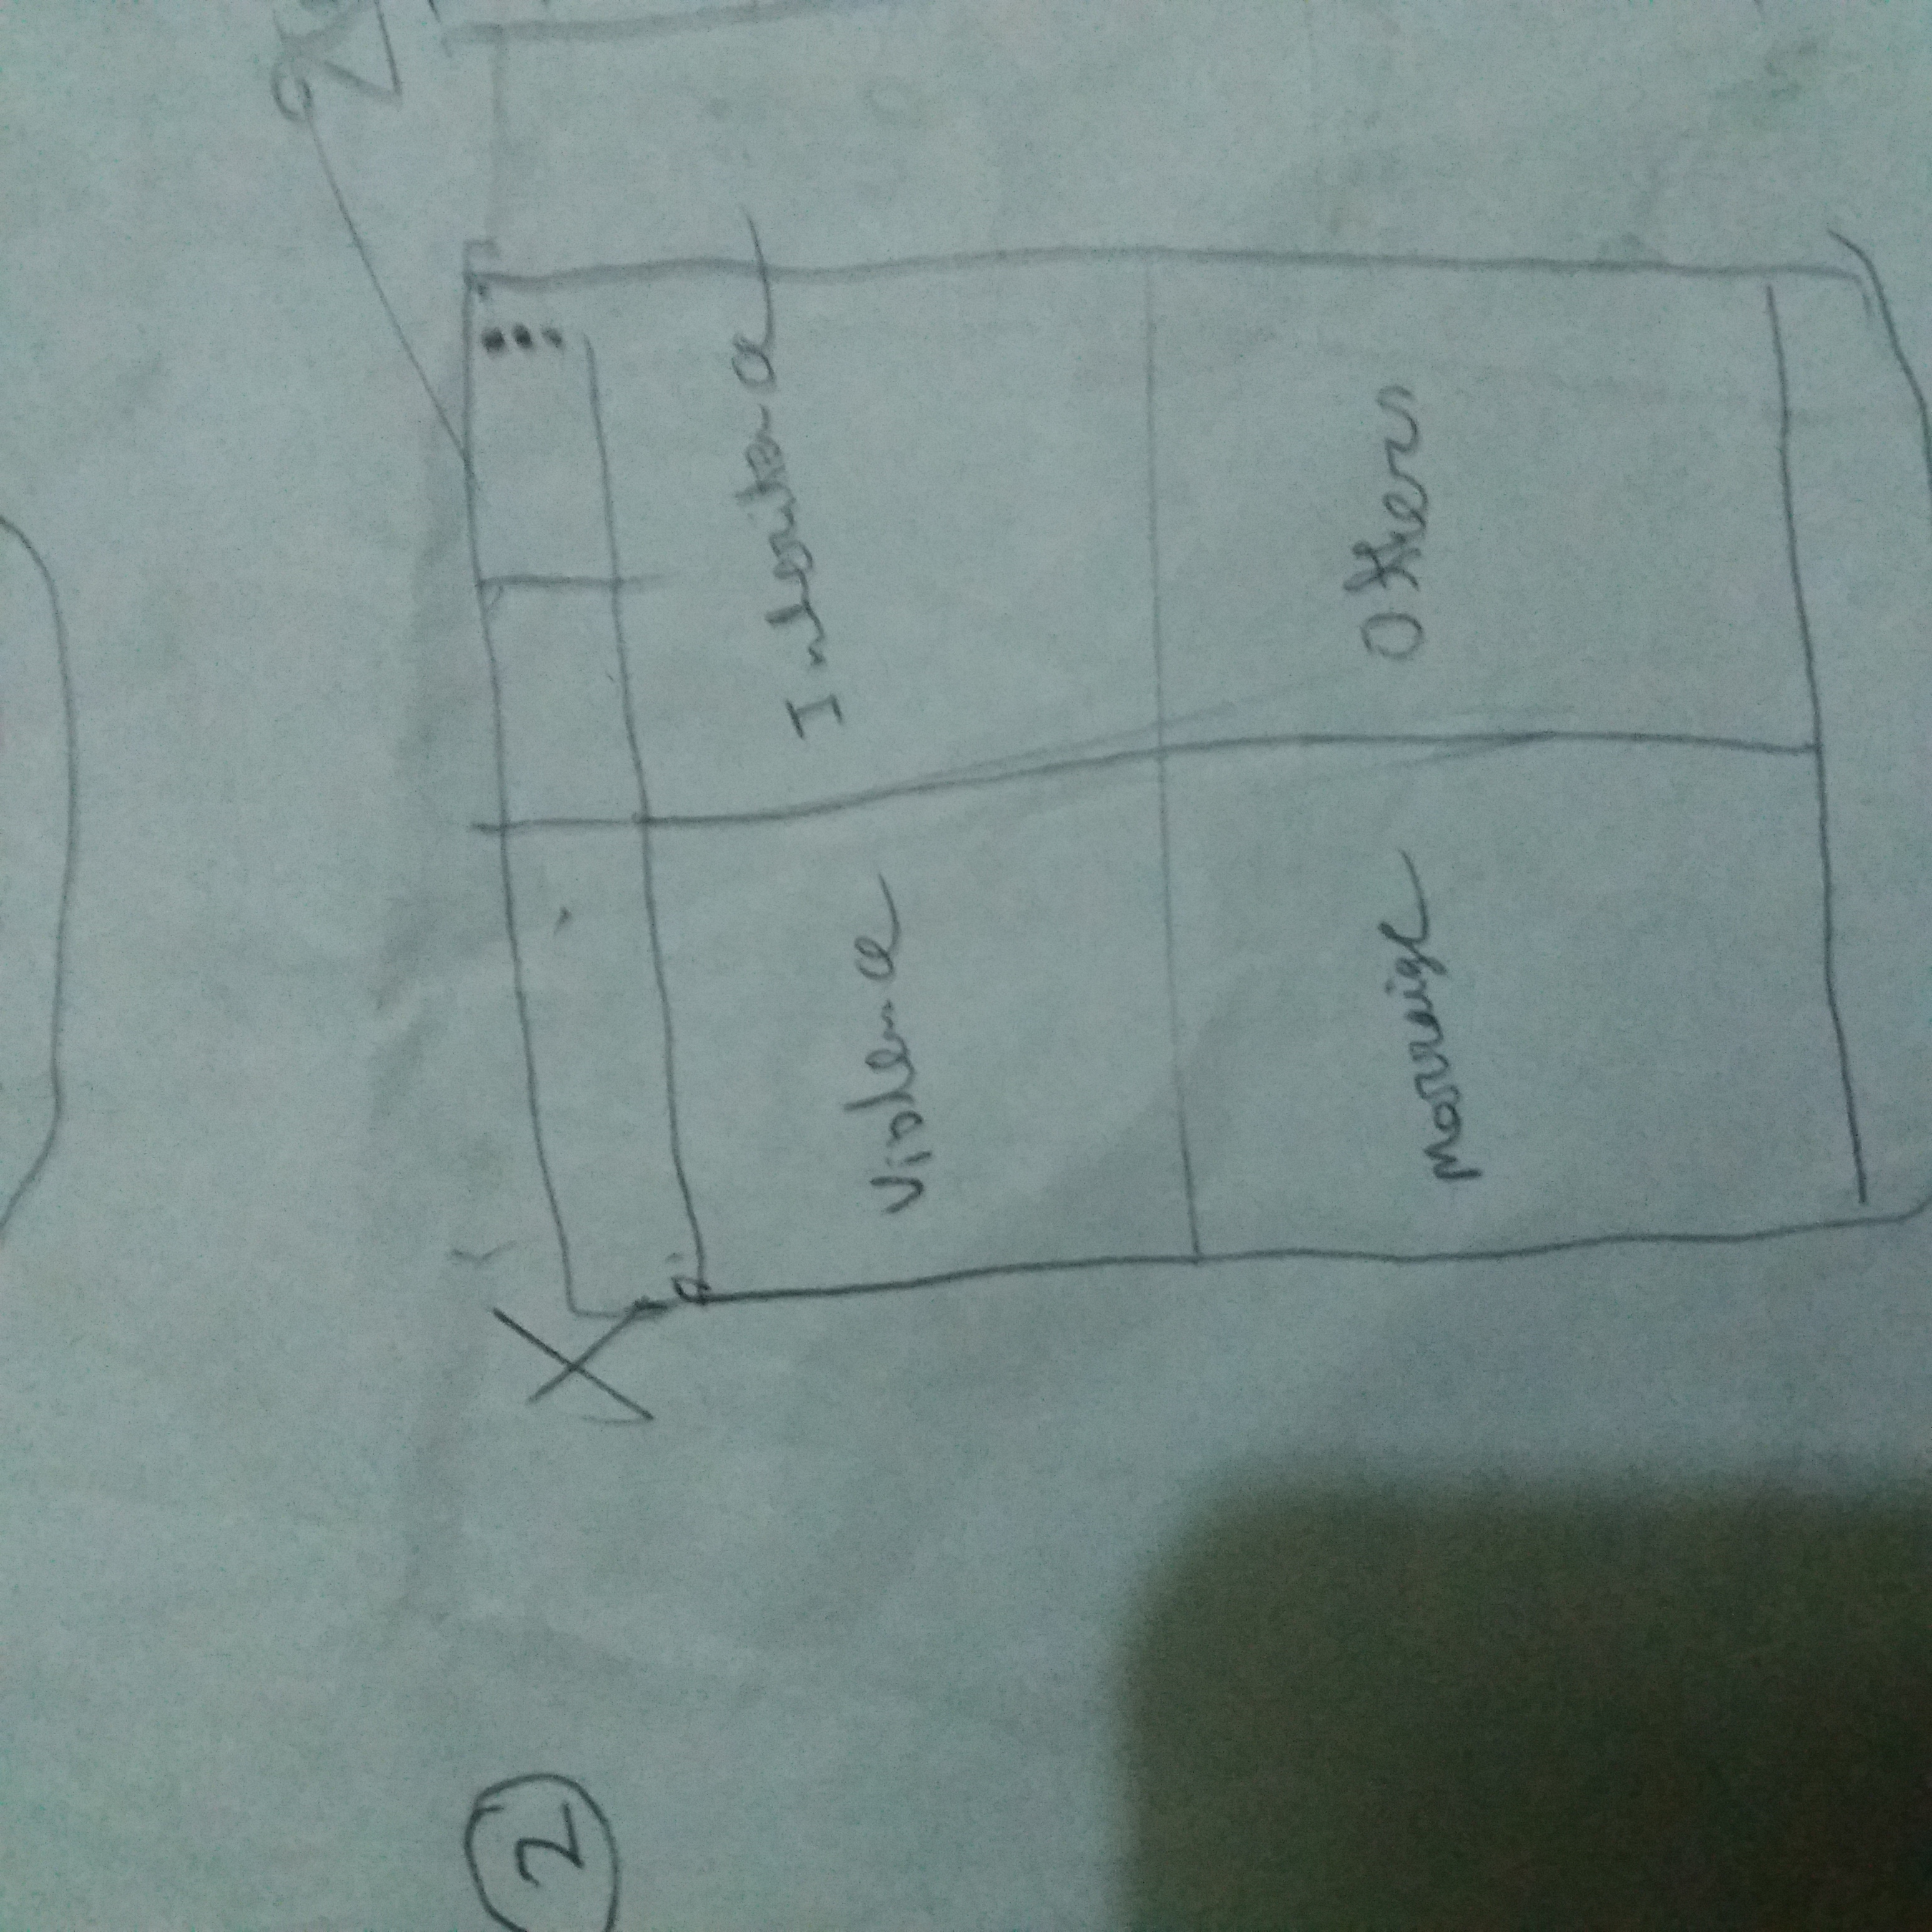 2
X
Violence
Inheritance
Marraige
Others